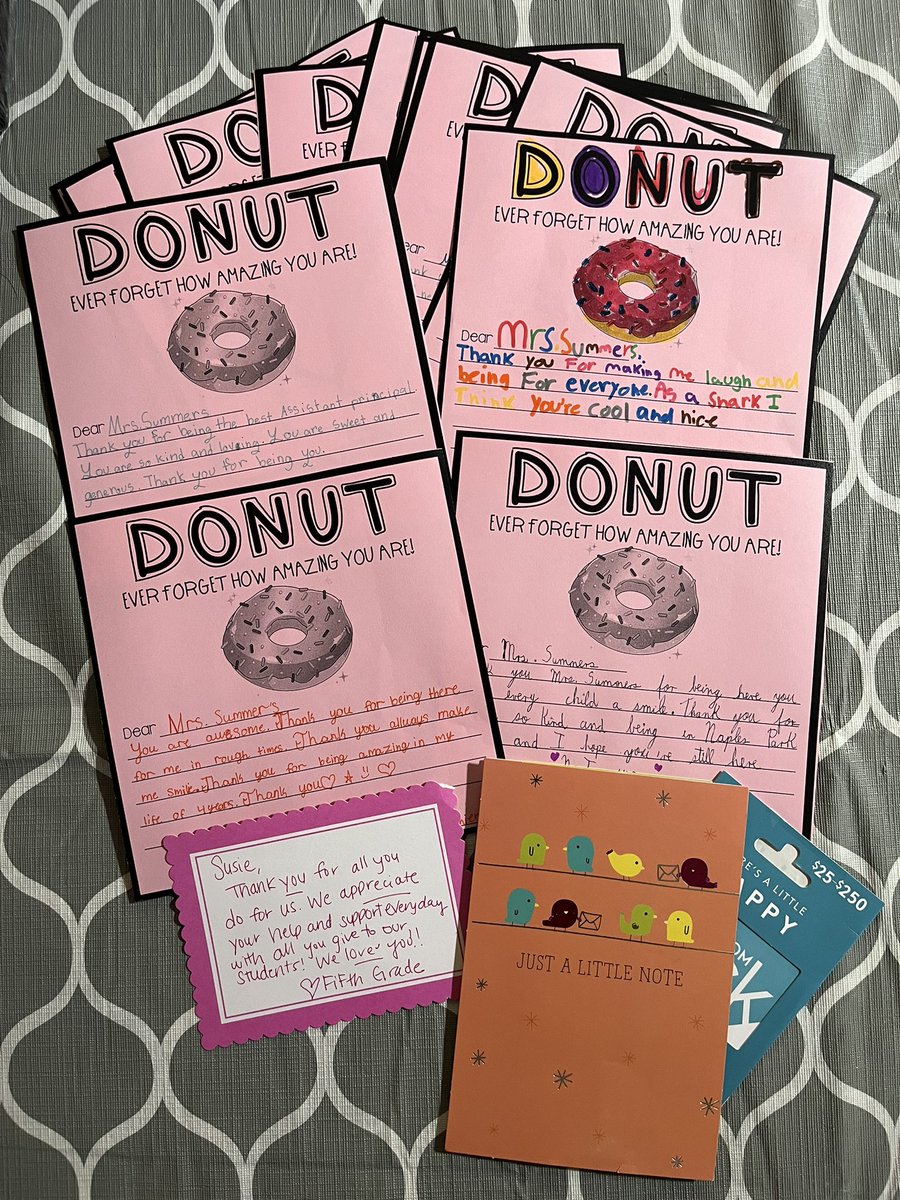 DONUT
DONUT
EVER FOR
DONUT
DONUT
DONUT
EVER FORGET HOW AMAZING YOU ARE!
Dear Mrs. Summers
Thank you for being the best Assistant principal.
You are so kind and loveing. You are sweet and
generous. Thank you for being you.
DONUT
EVER FORGET HOW AMAZING YOU ARE!
Dear Mrs. Summers.
Thank you For making me laugh and
being For everyone. As a shark I
Think you're cool and nice
DONUT
EVER FORGET HOW AMAZING YOU ARE!
Dear Mrs. Summers
You are awesome. Thank you for being there
for me in rough times. Thank you allways make
me smile. Thank you for being amazing in my
life of 4 years. Thank you
DONUT
EVER FORGET HOW AMAZING YOU ARE!
Mrs. Summers
you Mrs. Summers for being here you
every child a smile. Thank you for
so kind and being in Naples Park
and I hope you're still here
Susie,
Thank you for all you
do for us. We appreciate
your help and support everyday
with all you give to our
students! We love you!!
♡ Fifth Grade
JUST A LITTLE NOTE
$25-$250
RE'S A LITTLE
PPY
OM